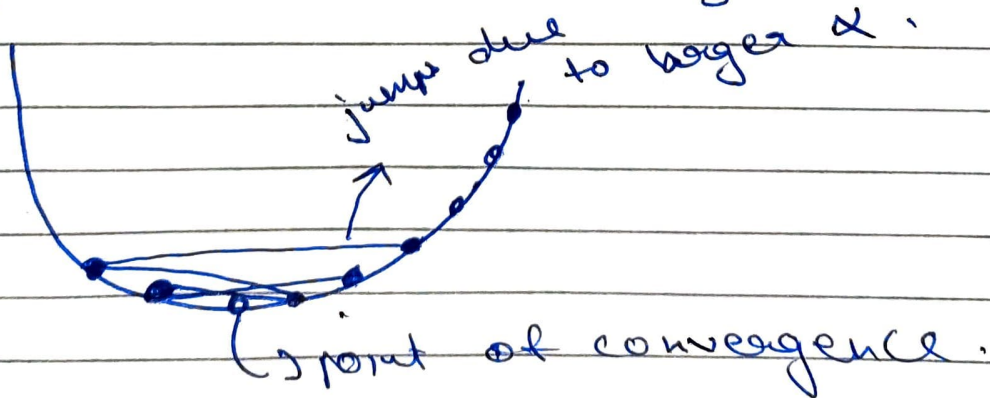 jumps due
to larger α.
point of convergence.